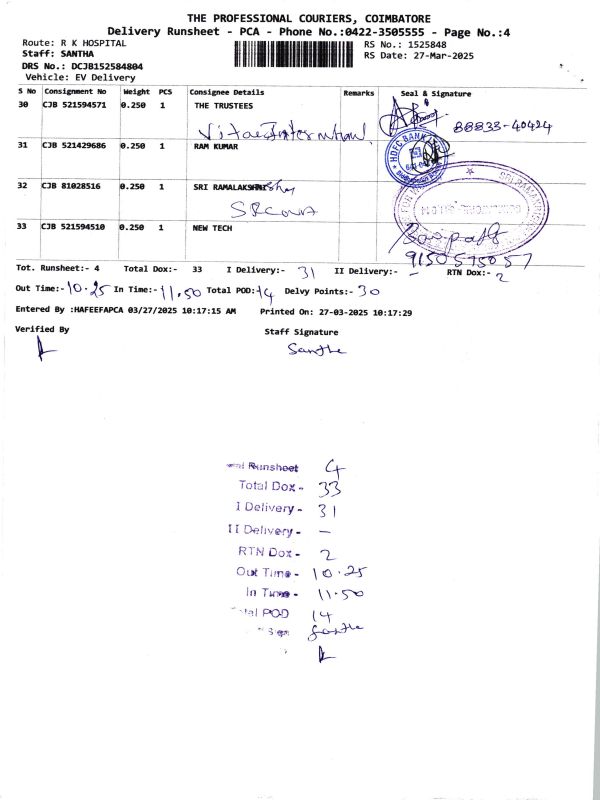 THE PROFESSIONAL COURIERS, COIMBATORE
Delivery Runsheet - PCA - Phone No.:0422-3505555 - Page No.:4
Route: R K HOSPITAL
RS No.: 1525848
Staff: SANTHA
RS Date: 27-Mar-2025
DRS No.: DCJB152584804
Vehicle: EV Delivery
S No Consignment No Weight PCS Consignee Details Remarks Seal & Signature
30 CJB 521594571 0.250 1 THE TRUSTEES
88833-40424
31 CJB 521429686 0.250 1 RAM KUMAR
HDFC BANK
32 CJB 81028516 0.250 1 SRI
33 CJB 521594510 0.250 1 NEW TECH
Tot. Runsheet:- 4 Total Dox:- 33 I Delivery:- 31 II Delivery:- - RTN Dox:- 2
Out Time:- 10.25 In Time:- 11.50 Total POD: 14 Delvy Points:- 30
Entered By :HAFEEFAPCA 03/27/2025 10:17:15 AM Printed On: 27-03-2025 10:17:29
Verified By Staff Signature
Santha
Runsheet 4
Total Dox - 33
I Delivery - 31
II Delivery - -
RTN Dox - 2
Out Time - 10.25
In Time - 11.50
POD 14
Sign Santha